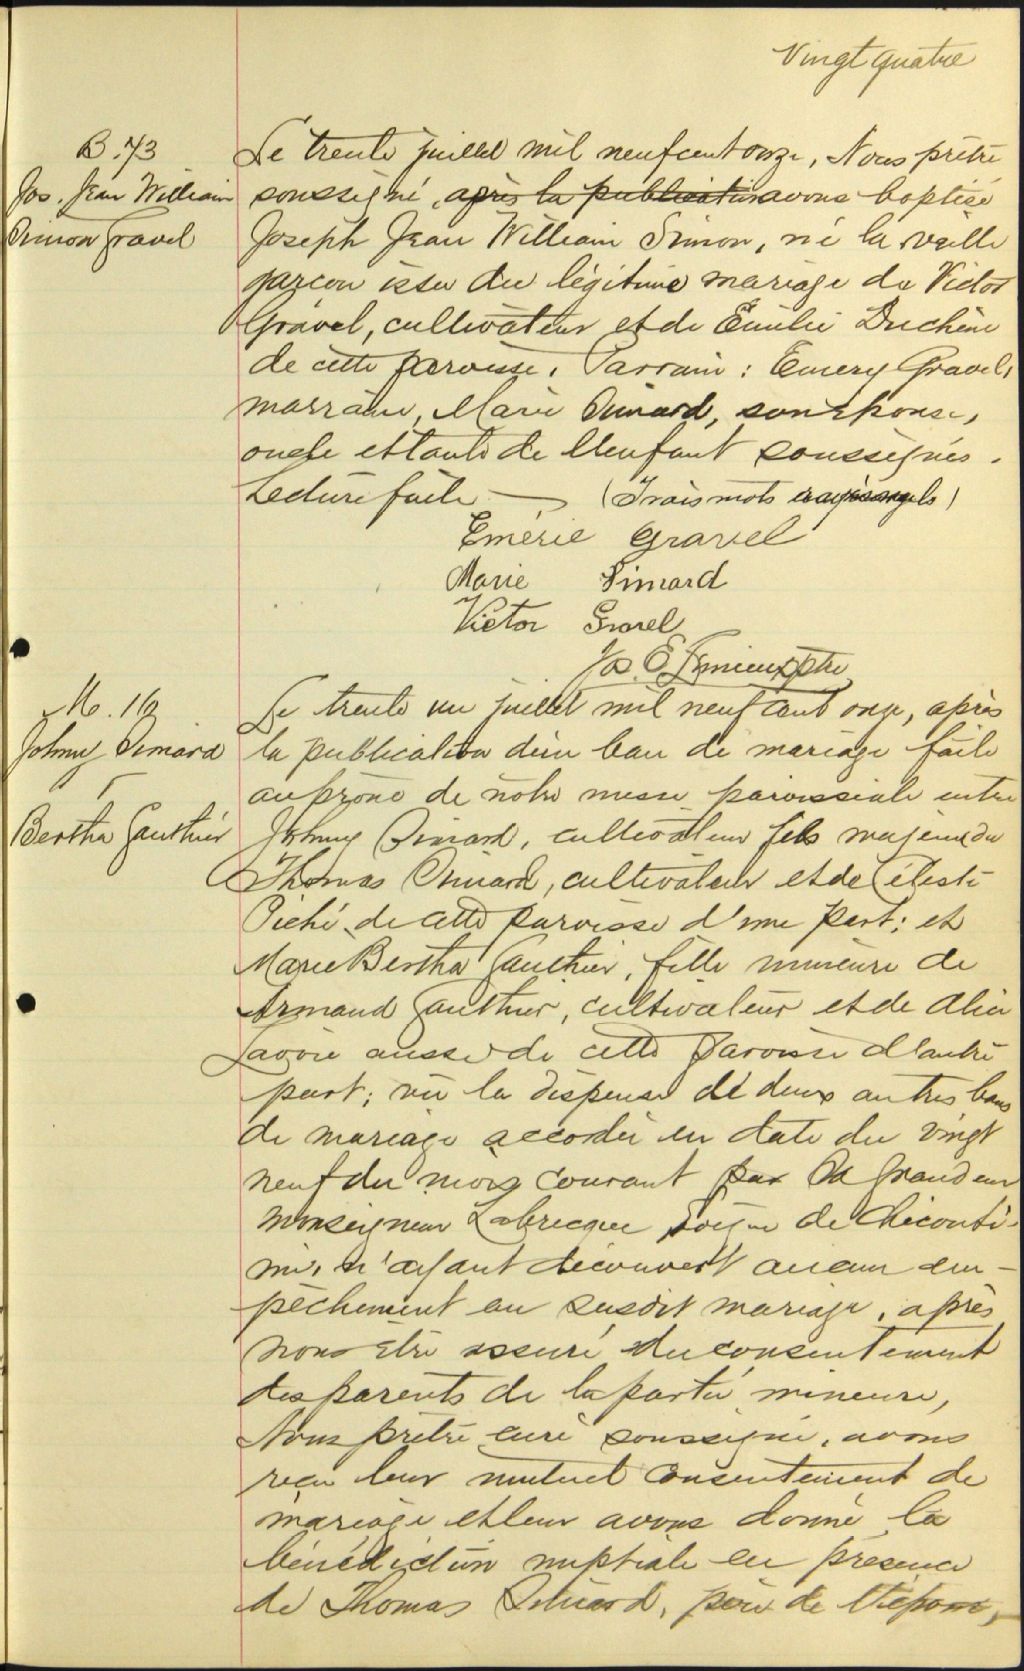 Vingt quatre
B. 73
Jos. Jean William
Simon Gravel
Le trente juillet mil neuf cent onze, Nous prêtre
soussigné, après la publication avons baptisé
Joseph Jean William Simon, né la veille
garçon issu du légitime mariage de Victor
Gravel, cultivateur et de Emilie Duchêne
de cette paroisse. Parrain : Emery Gravel,
marraine, Marie Simard, son épouse,
oncle et tante de l'enfant soussignés.
Lecture faite — (Trois mots rayés nuls)
Emérie Gravel
Marie Simard
Victor Gravel
Jos. E. Lemieux ptre
M. 16
Johny Simard
&
Bertha Gauthier
Le trente un juillet mil neuf cent onze, après
la publication d'un ban de mariage faite
au prône de notre messe paroissiale entre
Johnny Simard, cultivateur fils majeur de
Thomas Simard, cultivateur et de Céleste
Piché de cette paroisse d'une part; et
Marie Bertha Gauthier, fille mineure de
Armand Gauthier, cultivateur et de Alice
Lavoie aussi de cette paroisse d'autre
part; vu la dispense de deux autres bans
de mariage accordée en date du vingt
neuf du mois courant par Sa Grandeur
Monseigneur Labrecque Evêque de Chicouti-
mi, n'ayant découvert aucun em-
pêchement au susdit mariage, après
nous être assuré du consentement
des parents de la partie mineure,
Nous prêtre curé soussigné, avons
reçu leur mutuel consentement de
mariage et leur avons donné la
bénédiction nuptiale en présence
de Thomas Simard, père de l'époux,